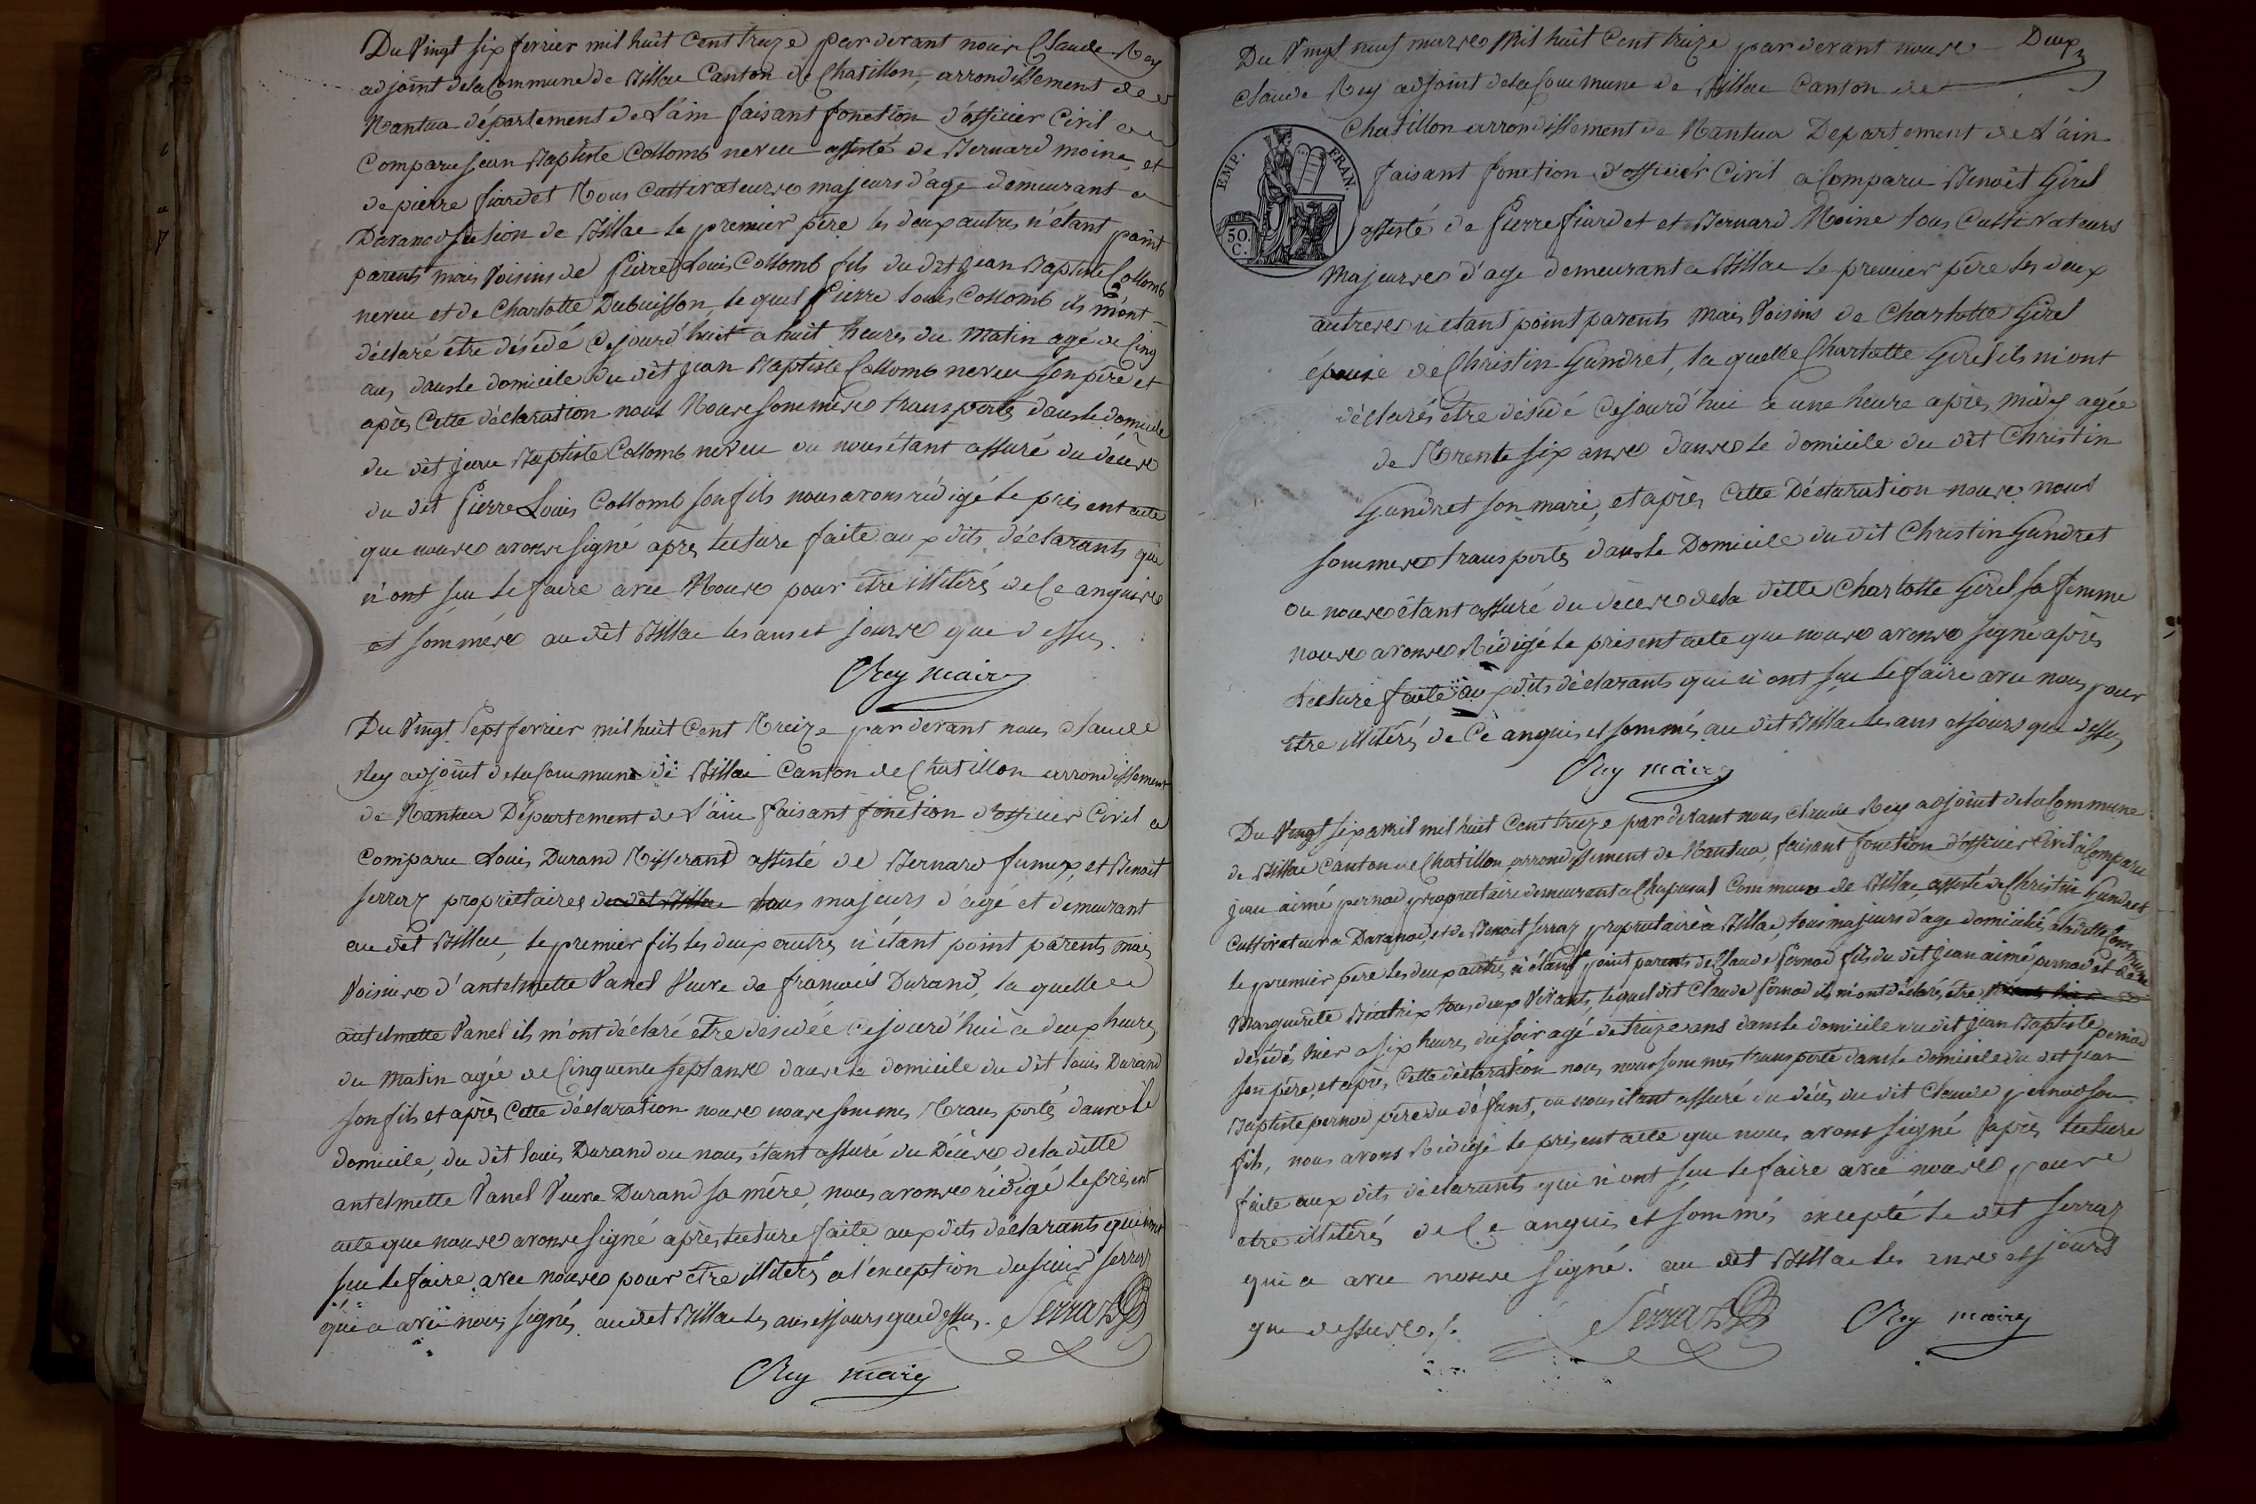 Du Vingt six fevrier mil huit Cent treize par devant nous Claude Rey
adjoint de la Commune de Billiac Canton de Chatillon, arrondissement de
Nantua département de L'ain faisant fonction d'officier Civil a
Comparu jean Baptiste Collomb neveu assisté de Bernard moine, et
de pierre fiardet Tous Cultivateurs majeurs d'age demeurant a
Davanod section de Billiac le premier père les deux autres n'étant point
parents mais Voisins de Pierre Louis Collomb fils du dit jean Baptiste Collomb
neveu et de Charlotte Dubuisson, le quel Pierre Louis Collomb ils m'ont
déclaré être désédé Cejourd'huit a huit heures du matin agé de Cinq
ans, dans le domicile du dit jean Baptiste Collomb neveu son père et
après Cette déclaration nous Nous sommes transportés dans le domicile
du dit jean Baptiste Collomb neveu ou nous étant assuré du décès
du dit Pierre Louis Collomb son fils nous avons rédigé le présent acte
que nous avons signé après lecture faite aux dits déclarants qui
n'ont sçu le faire avec Nous pour être illiterés de Ce anquis
et sommés au dit Billiac les ans et jours que dessus.
Rey maire
Du Vingt Sept fevrier mil huit Cent Treize par devant nous Claude
Rey adjoint de la Commune de Billiac Canton de Chatillon arrondissement
de Nantua Département de L'ain faisant fonction d'officier Civil a
Comparu Louis Durand Tisserand assisté de Bernard fumex, et Benoit
serraz propriétaires du dit Billiac tous majeurs d'agé et demeurant
au dit Billiac, le premier fils les deux autres n'étant point parents mais
Voisins d'antelmette Vanel Veuve de francois Durand, la quelle
antelmette Vanel ils m'ont déclaré etre désédée Cejourd'hui à deux heures
du Matin agée de Cinquante sept ans dans le domicile du dit Louis Durand
son fils et après Cette déclaration nous nous sommes Transportés dans le
domicile, du dit Louis Durand ou nous étant assuré du Décès de la ditte
antelmette Vanel Veuve Durand sa mère, nous avons rédigé le présent
acte que nous avons signé après lecture faite aux dits déclarants qui n'ont
sçu le faire avec nous pour être illiterés a l'exception du sieur serraz
qui a avec nous signés au dit Billiac les ans et jours que dessus. Serraz
Rey maire
Du Vingt neuf mars Mil huit Cent treize par devant nous Deux
Claude Rey adjoint de la Commune de Billiac Canton de
Chatillon arrondissement de Nantua Departement de L'ain
EMP. FRAN.
50. C.
faisant fonction d'officier Civil a Comparu Benoit Girel
assisté de Pierre fiardet et Bernard Moine tous Cultivateurs
Majeurs d'age demeurant a Billiac le premier père les deux
autres n'etant point parents Mais Voisins de Charlotte Girel
épouse de Christin Gandret, la quelle Charlotte Girel ils m'ont
déclarés etre désédé Cejourd'hui a une heure après midy agée
de Trente six ans dans le domicile du dit Christin
Gandret son mari, et après Cette Déclaration nous nous
sommes transportés dans le Domicile du dit Christin Gandret
ou nous étant assuré du décès de la ditte Charlotte Girel sa femme
nous avons Rédigé le présent acte que nous avons signé après
Lecture faite aux dits déclarants qui n'ont sçu le faire avec nous pour
Etre illiterés de Cè anquis et sommés au dit Billiac les ans et jours que dessus
Rey maire
Du Vingt six avril mil huit Cent treize par devant nous Claude Rey adjoint de la Commune
de Billiac Canton de Chatillon arrondissement de Nantua, faisant fonction d'officier Civil a Comparu
jean aimé pernod propriétaire demeurant a Commune de Billiac, assisté de Christin Gandret
Cultivateur a Davanod, et de Benoit serraz propriétaire à Billiac, tous majeurs d'age domiciliés à la ditte Commune
le premier père les deux autres n'étant point parents de Claude Pernod fils du dit jean aimé pernod et de
Marguerite Béatrix tous deux Vivants, lequel dit Claude Pernod ils m'ont déclarés être
desédés hier a six heures du soir agé de treize ans dans le domicile du dit jean Baptiste pernod
son père, et après Cette déclaration nous nous sommes transportés dans le domicile du dit jean
Baptiste pernod père du défunt, ou nous étant assuré du décès du dit Claude pernod son
fils, nous avons Rédigé le présent acte que nous avons signé après lecture
faite aux dits déclarants qui n'ont sçu le faire avec nous pour
etre illiterés de Ce anquis et sommés excepté le dit serraz
qui a avec nous signé. au dit Billiac les ans et jours
que dessus./.
Serraz Rey maire